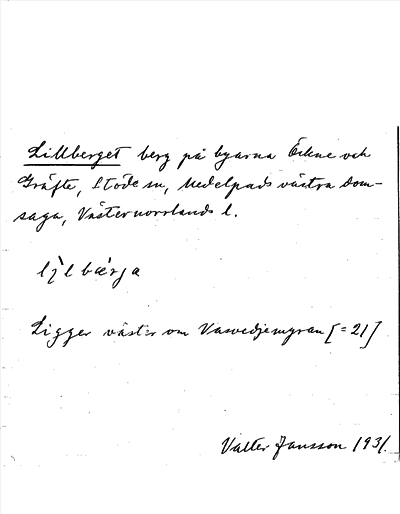 Lillberget berg på byarna Öckne och
Gräfte, Stöde sn, Medelpads västra dom-
saga, Västernorrlands l.
Ligger väster om Vasvedjemyran [= 21]
Valter Jansson 1931.